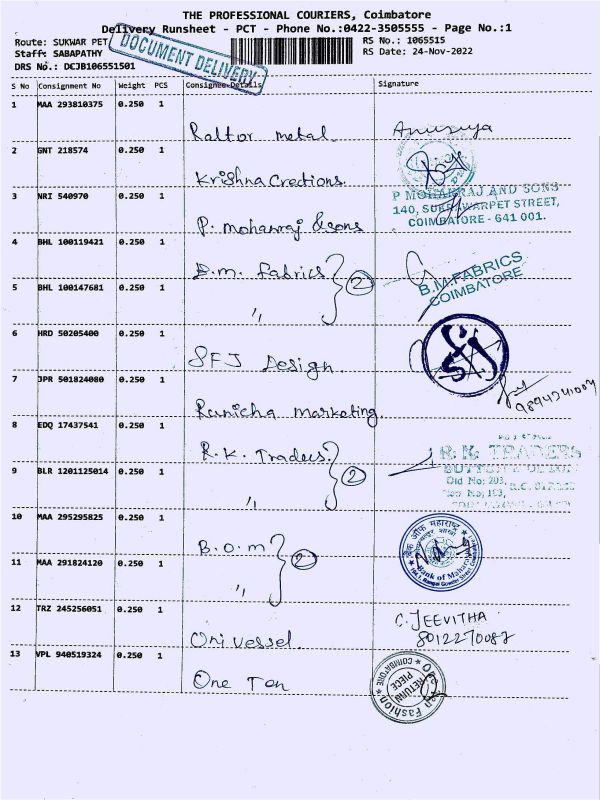 THE PROFESSIONAL COURIERS, Coimbatore
Delivery Runsheet - PCT - Phone No.:0422-3505555 - Page No.:1
Route: SUKWAR PET
RS No.: 1065515
Staff: SABAPATHY
RS Date: 24-Nov-2022
DRS No.: DCJB106551501
DOCUMENT DELIVERY
S No Consignment No Weight PCS Consignee Details Signature
1 MAA 293810375 0.250 1
Raltor metal Anusuya
2 GNT 218574 0.250 1
Krishna Crections
3 NRI 540970 0.250 1
P MOHANRAJ AND SONS
140, SUKRAWARPET STREET,
COIMBATORE - 641 001.
P. mohanraj & sons
4 BHL 100119421 0.250 1
B.m. Fabrics 2
B.M.FABRICS
COIMBATORE
5 BHL 100147681 0.250 1
"
6 HRD 50205400 0.250 1
SFJ Design
SFJ
7 JPR 501824080 0.250 1
Ranicha marketing
8 EDQ 17437541 0.250 1
R.K. Traders 2
R. K. TRADERS
Old No: 203,
9 BLR 1201125014 0.250 1
"
10 MAA 295295825 0.250 1
B.O.M 2
बैंक ऑफ महाराष्ट्र
Bank of Mahara
11 MAA 291824120 0.250 1
"
12 TRZ 245256051 0.250 1
C. JEEVITHA
8012270087
Uni vessel
13 VPL 940519324 0.250 1
One Ten
COIMBATORE
RETURN
PIECE
Fashion